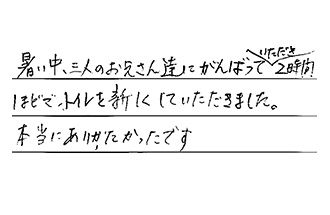 暑い中、三人のお兄さん達にがんばっていただき2時間
ほどで、トイレを新しくしていただきました。
本当にありがたかったです